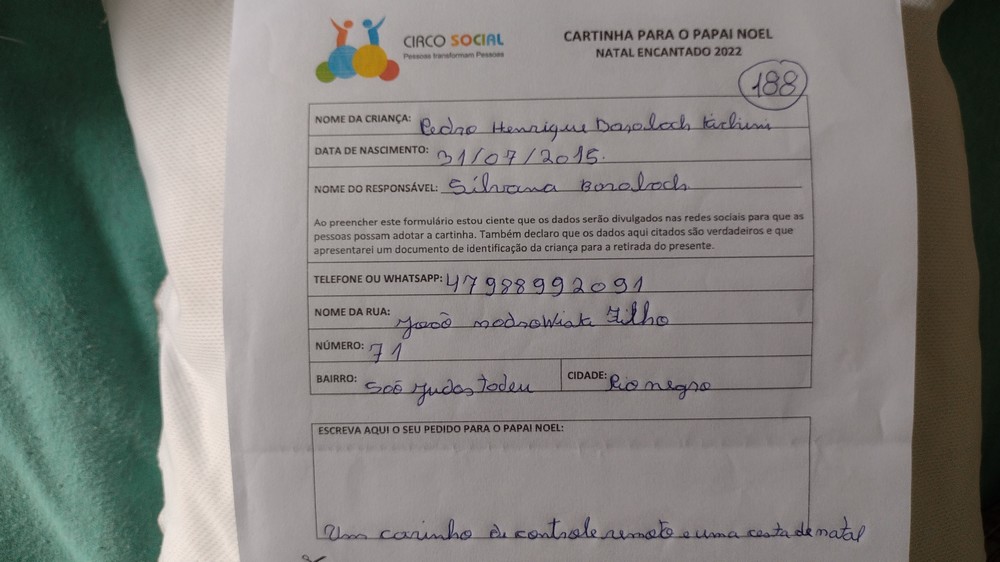 CIRCO SOCIAL
Pessoas transformam Pessoas
CARTINHA PARA O PAPAI NOEL
NATAL ENCANTADO 2022
188
NOME DA CRIANÇA: Pedro Henrique
DATA DE NASCIMENTO: 31/07/2015.
NOME DO RESPONSÁVEL: Silvana
Ao preencher este formulário estou ciente que os dados serão divulgados nas redes sociais para que as
pessoas possam adotar a cartinha. Também declaro que os dados aqui citados são verdadeiros e que
apresentarei um documento de identificação da criança para a retirada do presente.
TELEFONE OU WHATSAPP: 47988992091
NOME DA RUA: João Filho
NÚMERO: 71
BAIRRO: Soõ Judas Tadeu CIDADE: Rio negro
ESCREVA AQUI O SEU PEDIDO PARA O PAPAI NOEL:
Um carinho de controle remoto e uma cesta de natal